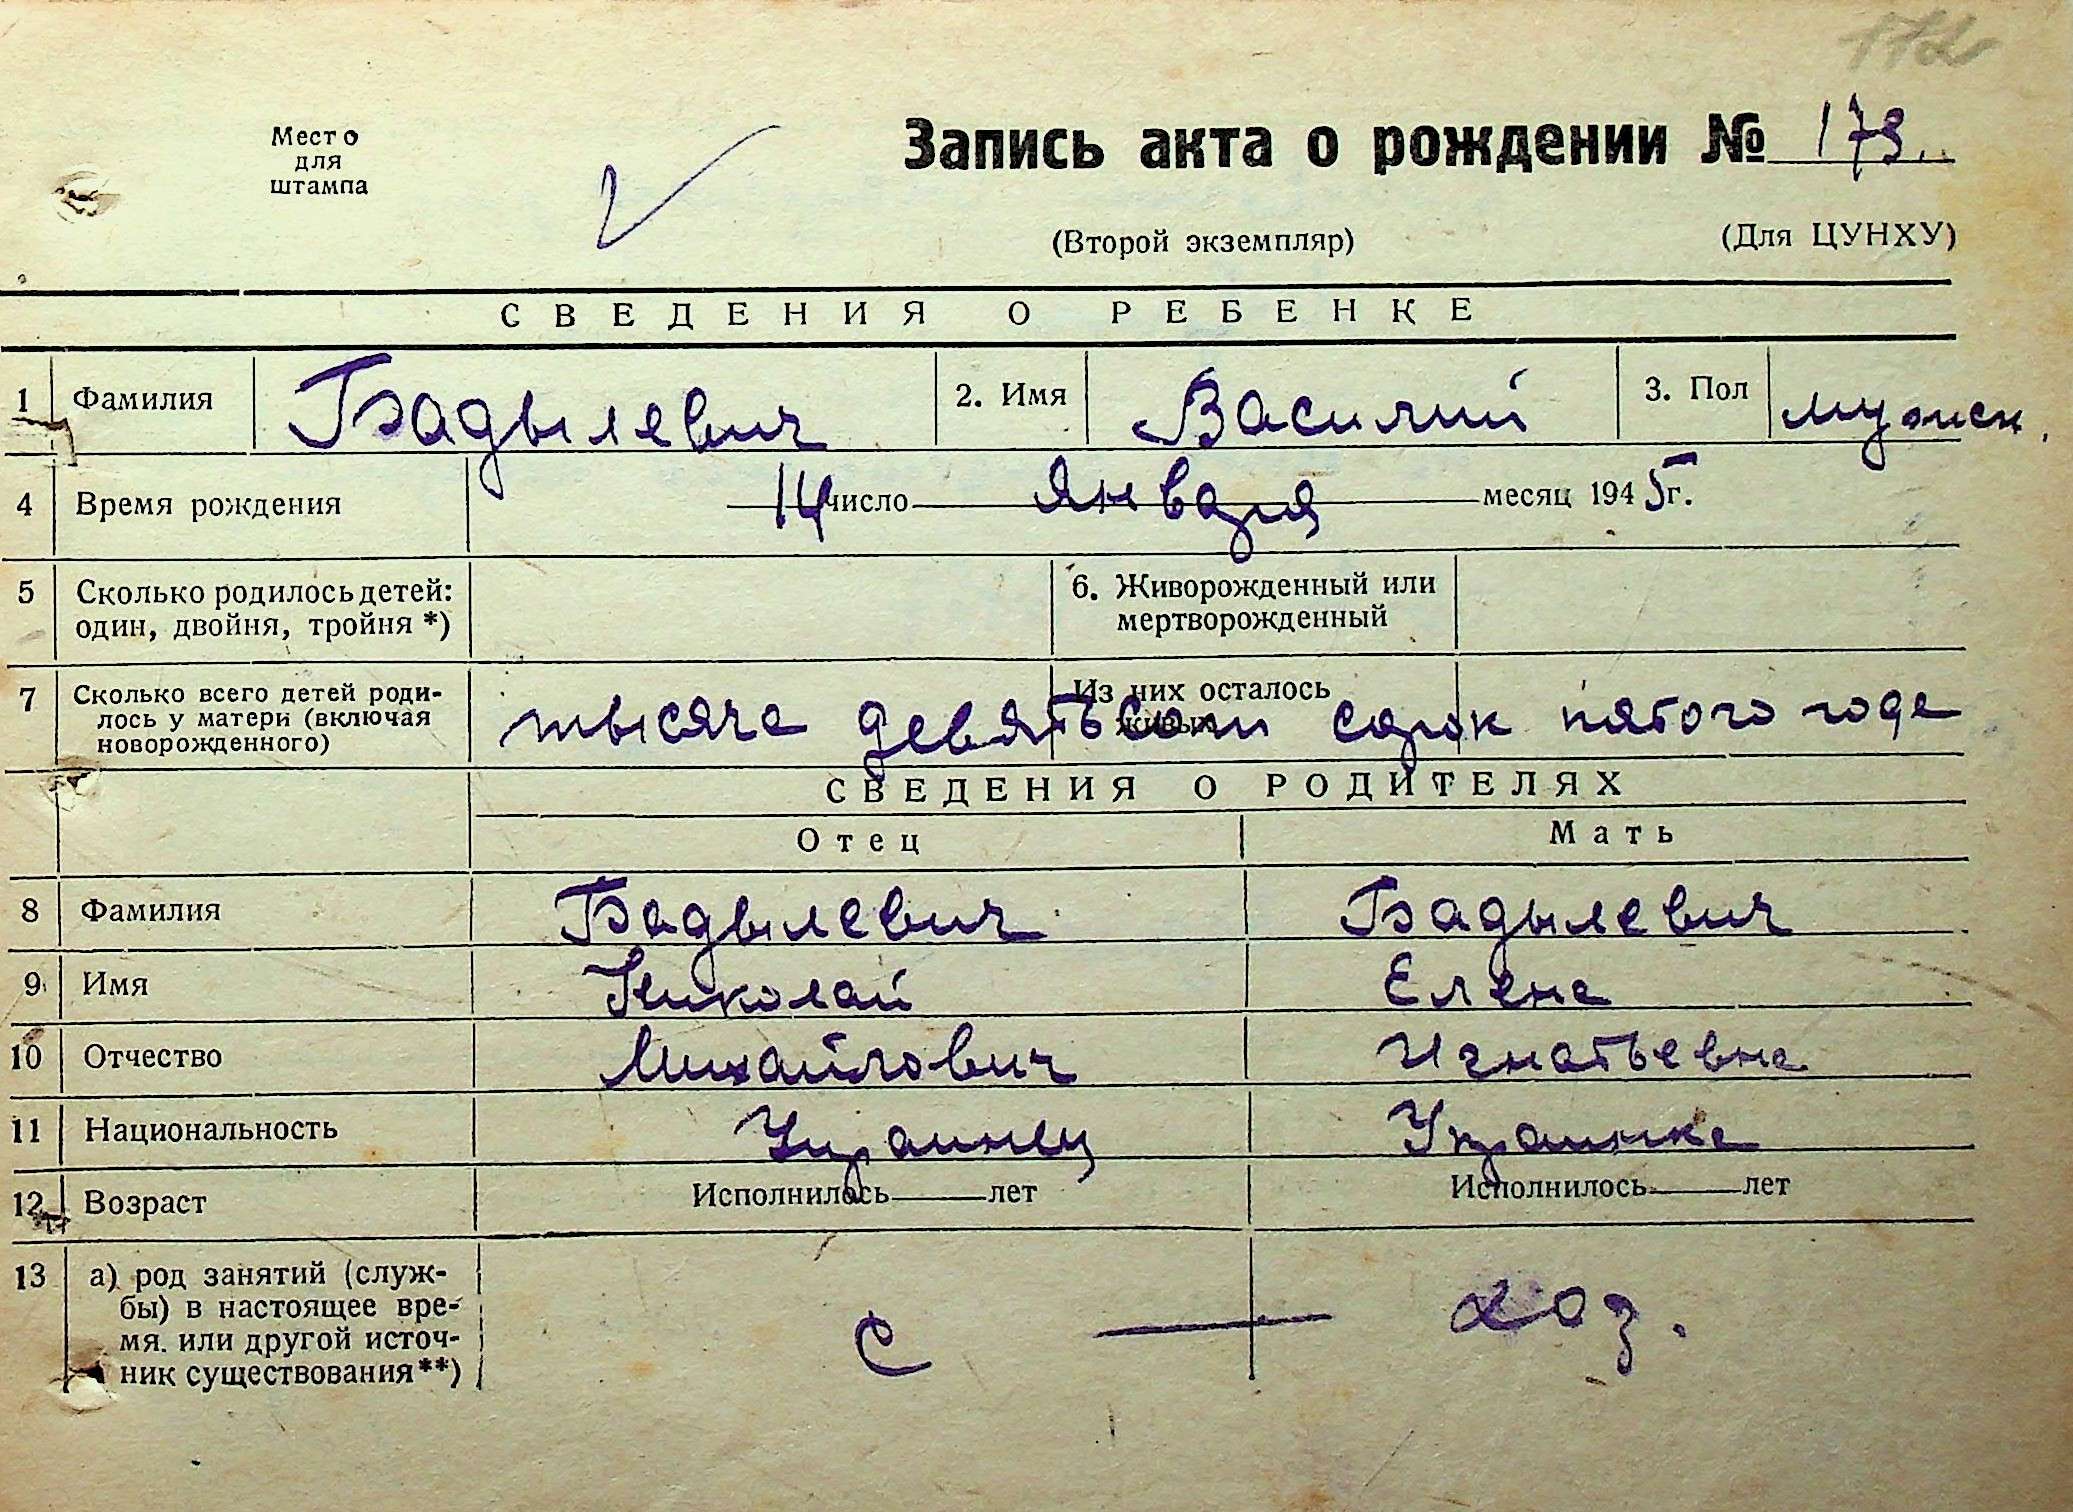 Место
для
штампа
Запись акта о рождении № 173
(Второй экземпляр) (Для ЦУНХУ)
СВЕДЕНИЯ О РЕБЕНКЕ
1 Фамилия Бадылевич 2. Имя Василий 3. Пол мужск.
4 Время рождения 14 число Января месяц 1945 г.
5 Сколько родилось детей: 6. Живорожденный или
один, двойня, тройня *) мертворожденный
7 Сколько всего детей роди- Из них осталось
лось у матери (включая живых
новорожденного)
тысяча девятьсот сорок пятого года
СВЕДЕНИЯ О РОДИТЕЛЯХ
Отец Мать
8 Фамилия Бадылевич Бадылевич
9 Имя Николай Елена
10 Отчество Михайлович Игнатьевна
11 Национальность Украинец Украинка
12 Возраст Исполнилось лет Исполнилось лет
13 а) род занятий (служ-
бы) в настоящее вре-
мя. или другой источ-
ник существования**)
с — хоз.